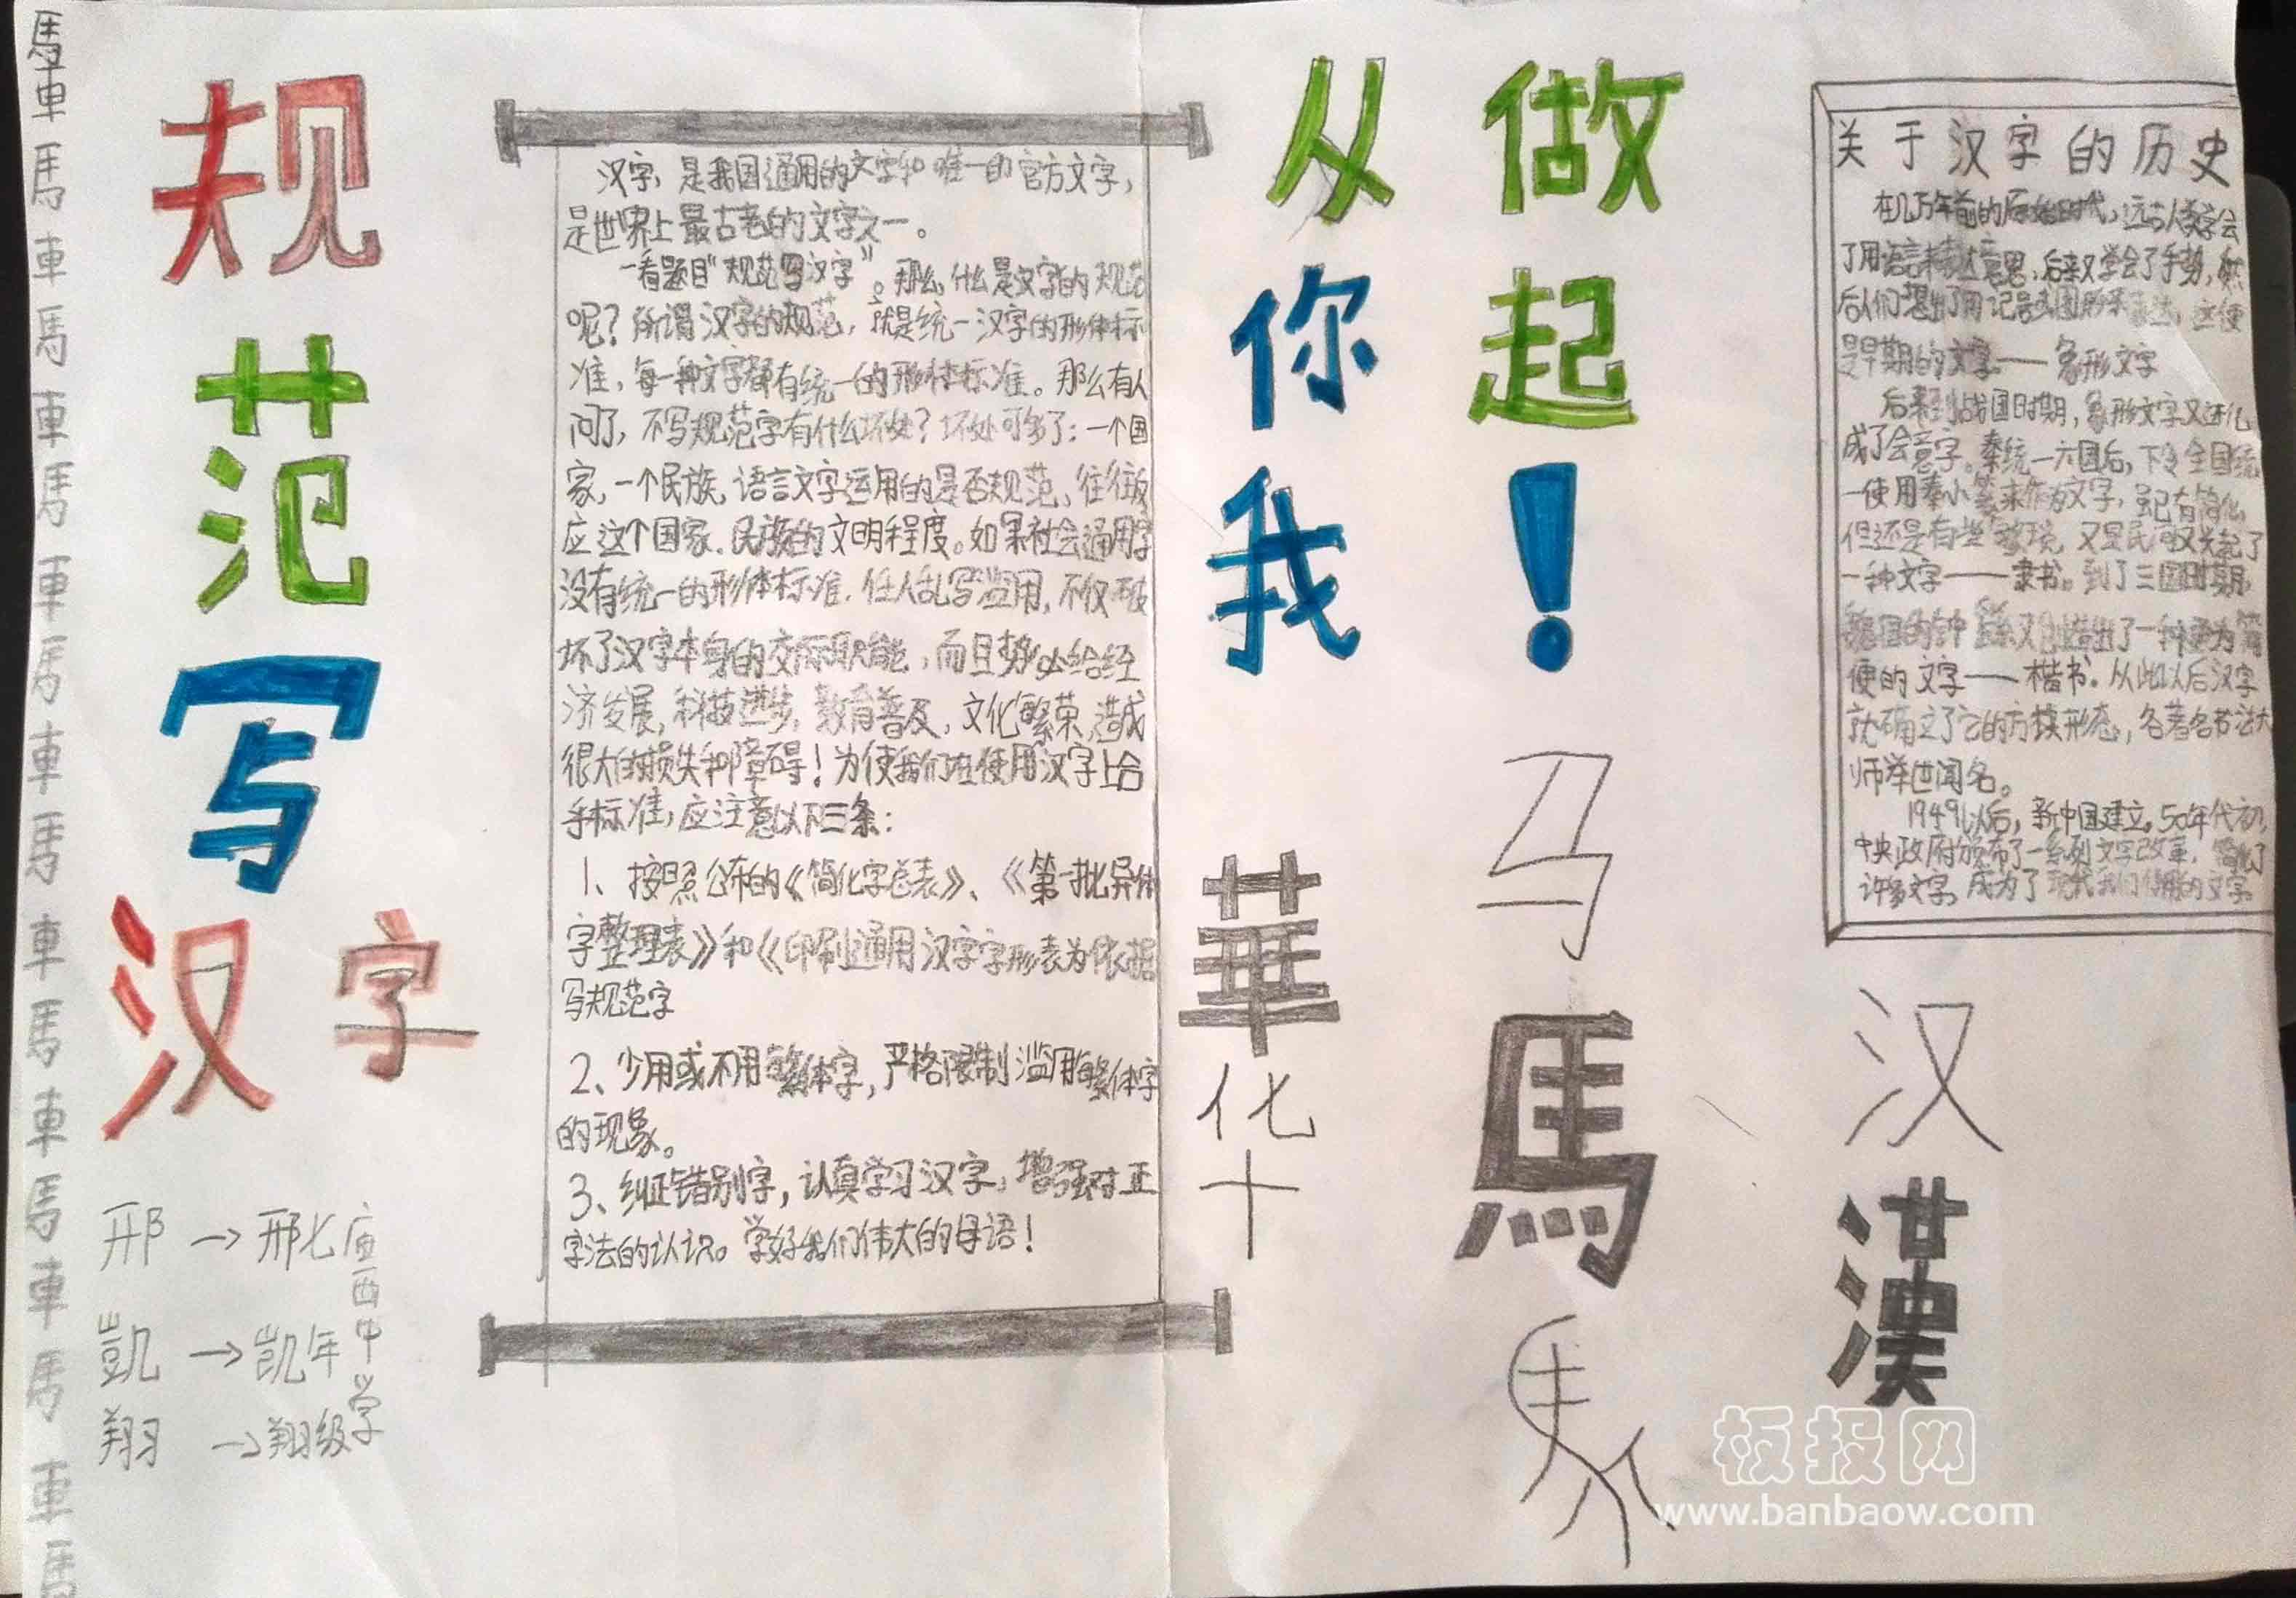 馬
車
馬
車
馬
車
馬
車
馬
車
馬
車
馬
車
馬
車
馬
車
馬
规范写汉字
邢→邢七
凱→凯年
翔→翔级
庙西中学
汉字，是我国通用的文字和唯一的官方文字，
是世界上最古老的文字之一。
一看题目“规范写汉字”。那么，什么是文字的规范
呢？所谓汉字的规范，就是统一汉字的形体标
准，每一种文字都有统一的形体标准。那么有人
问了，不写规范字有什么坏处？坏处可多了：一个国
家，一个民族，语言文字运用的是否规范，往往反
应这个国家、民族的文明程度。如果社会通用字
没有统一的形体标准，任人乱写滥用，不仅破
坏了汉字本身的交际职能，而且势必给经
济发展，科技进步，教育普及，文化繁荣，造成
很大的损失和障碍！为使我们在使用汉字上合
乎标准，应注意以下三条：
1、按照公布的《简化字总表》、《第一批异体
字整理表》和《印刷通用汉字字形表为依据
写规范字
2、少用或不用繁体字，严格限制滥用繁体字
的现象。
3、纠正错别字，认真学习汉字，增强对正
字法的认识。学好我们伟大的母语！
从你我
做起！
華
化
十
马
馬
关于汉字的历史
在几万年前的原始时代，远古人类学会
了用语言来表达意思，后来又学会了手势，然
后人们想出了用记号或图形来表达，这便
是早期的文字——象形文字
后来到战国时期，象形文字又进化
成了会意字。秦统一六国后，下令全国统
一使用秦小篆来作为文字，虽已有简化
但还是有些繁琐，又是民间又兴起了
一种文字——隶书。到了三国时期，
魏国的钟繇又创造出了一种更为简
便的文字——楷书。从此以后汉字
就确立了它的方块形态，各著名书法大
师举世闻名。
1949以后，新中国建立。50年代初，
中央政府颁布了一系列文字改革，简化了
许多文字，成为了现代我们使用的文字
汉
漢
板报网
www.banbaow.com